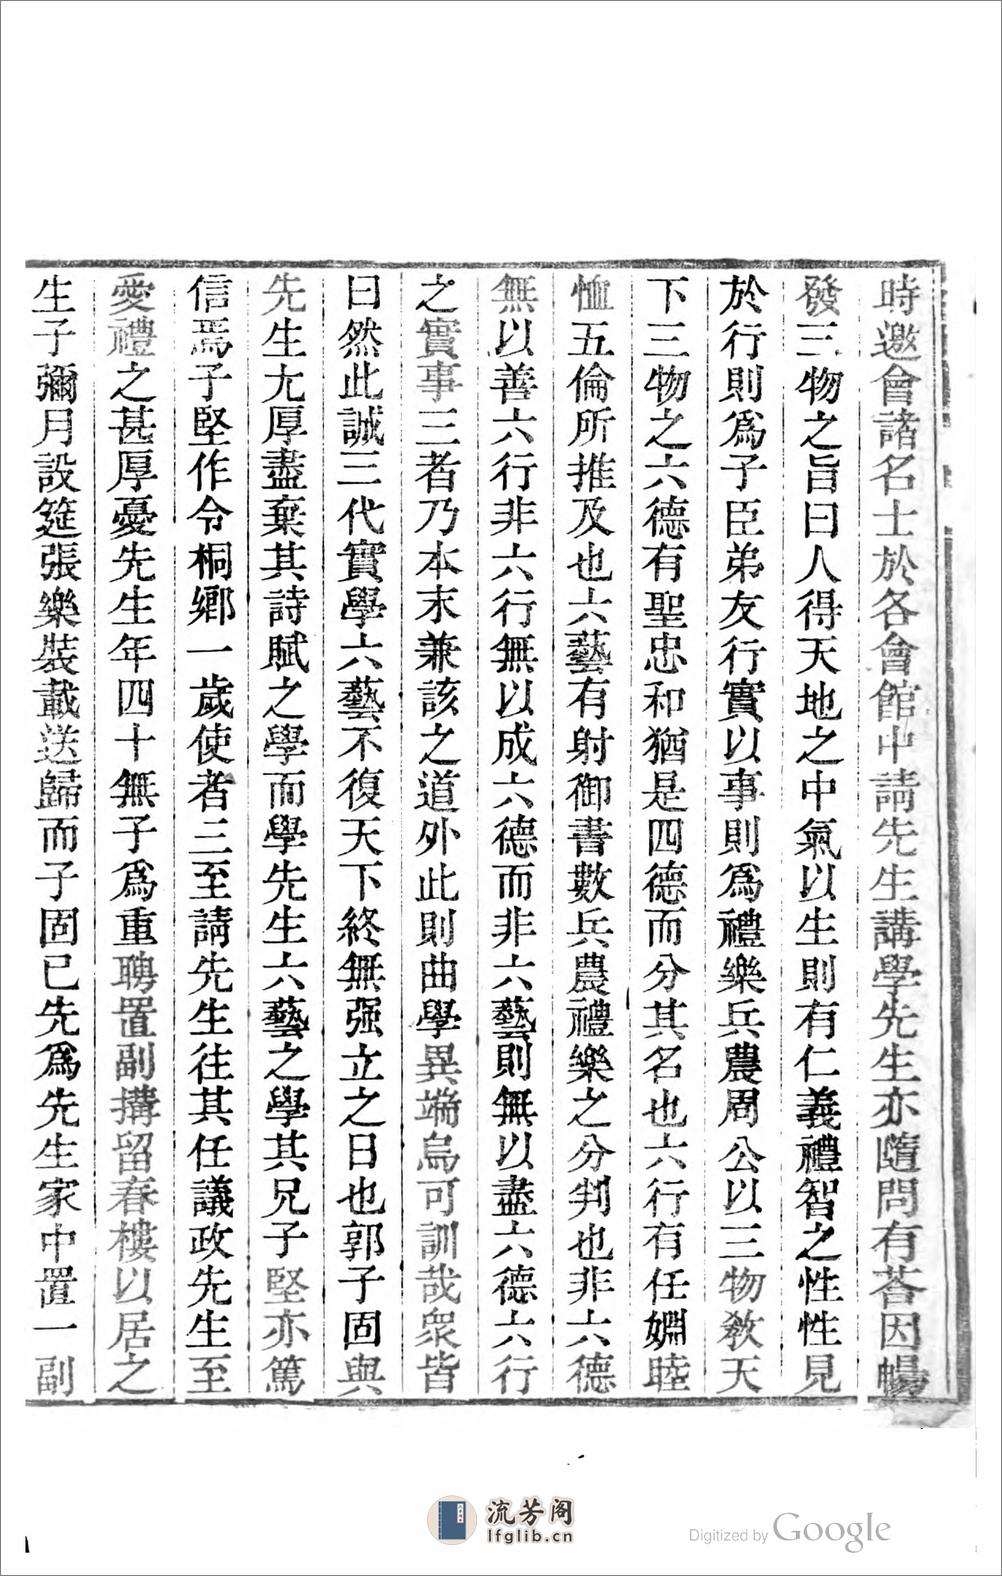 時邀會諸名士於各會館中請先生講學先生亦隨問有荅因暢
發三物之旨曰人得天地之中氣以生則有仁義禮智之性性見
於行則爲子臣弟友行實以事則爲禮樂兵農周公以三物教天
下三物之六德有聖忠和猶是四德而分其名也六行有任婣睦
恤五倫所推及也六藝有射御書數兵農禮樂之分判也非六德
無以善六行非六行無以成六德而非六藝則無以盡六德六行
之實事三者乃本末兼該之道外此則曲學異端烏可訓哉衆皆
曰然此誠三代實學六藝不復天下終無强立之日也郭子固與
先生尢厚盡棄其詩賦之學而學先生六藝之學其兄子堅亦篤
信焉子堅作令桐鄉一歲使者三至請先生往其任議政先生至
愛禮之甚厚憂先生年四十無子爲重聘置副搆留春樓以居之
生子彌月設筵張樂裝載送歸而子固已先爲先生家中置一副
流芳阁
lfglib.cn
Digitized by Google